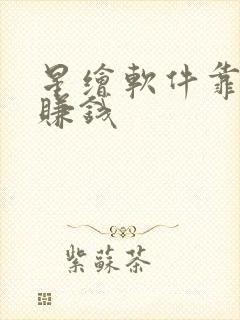 星繪軟件靠
賺錢
紫蘇茶